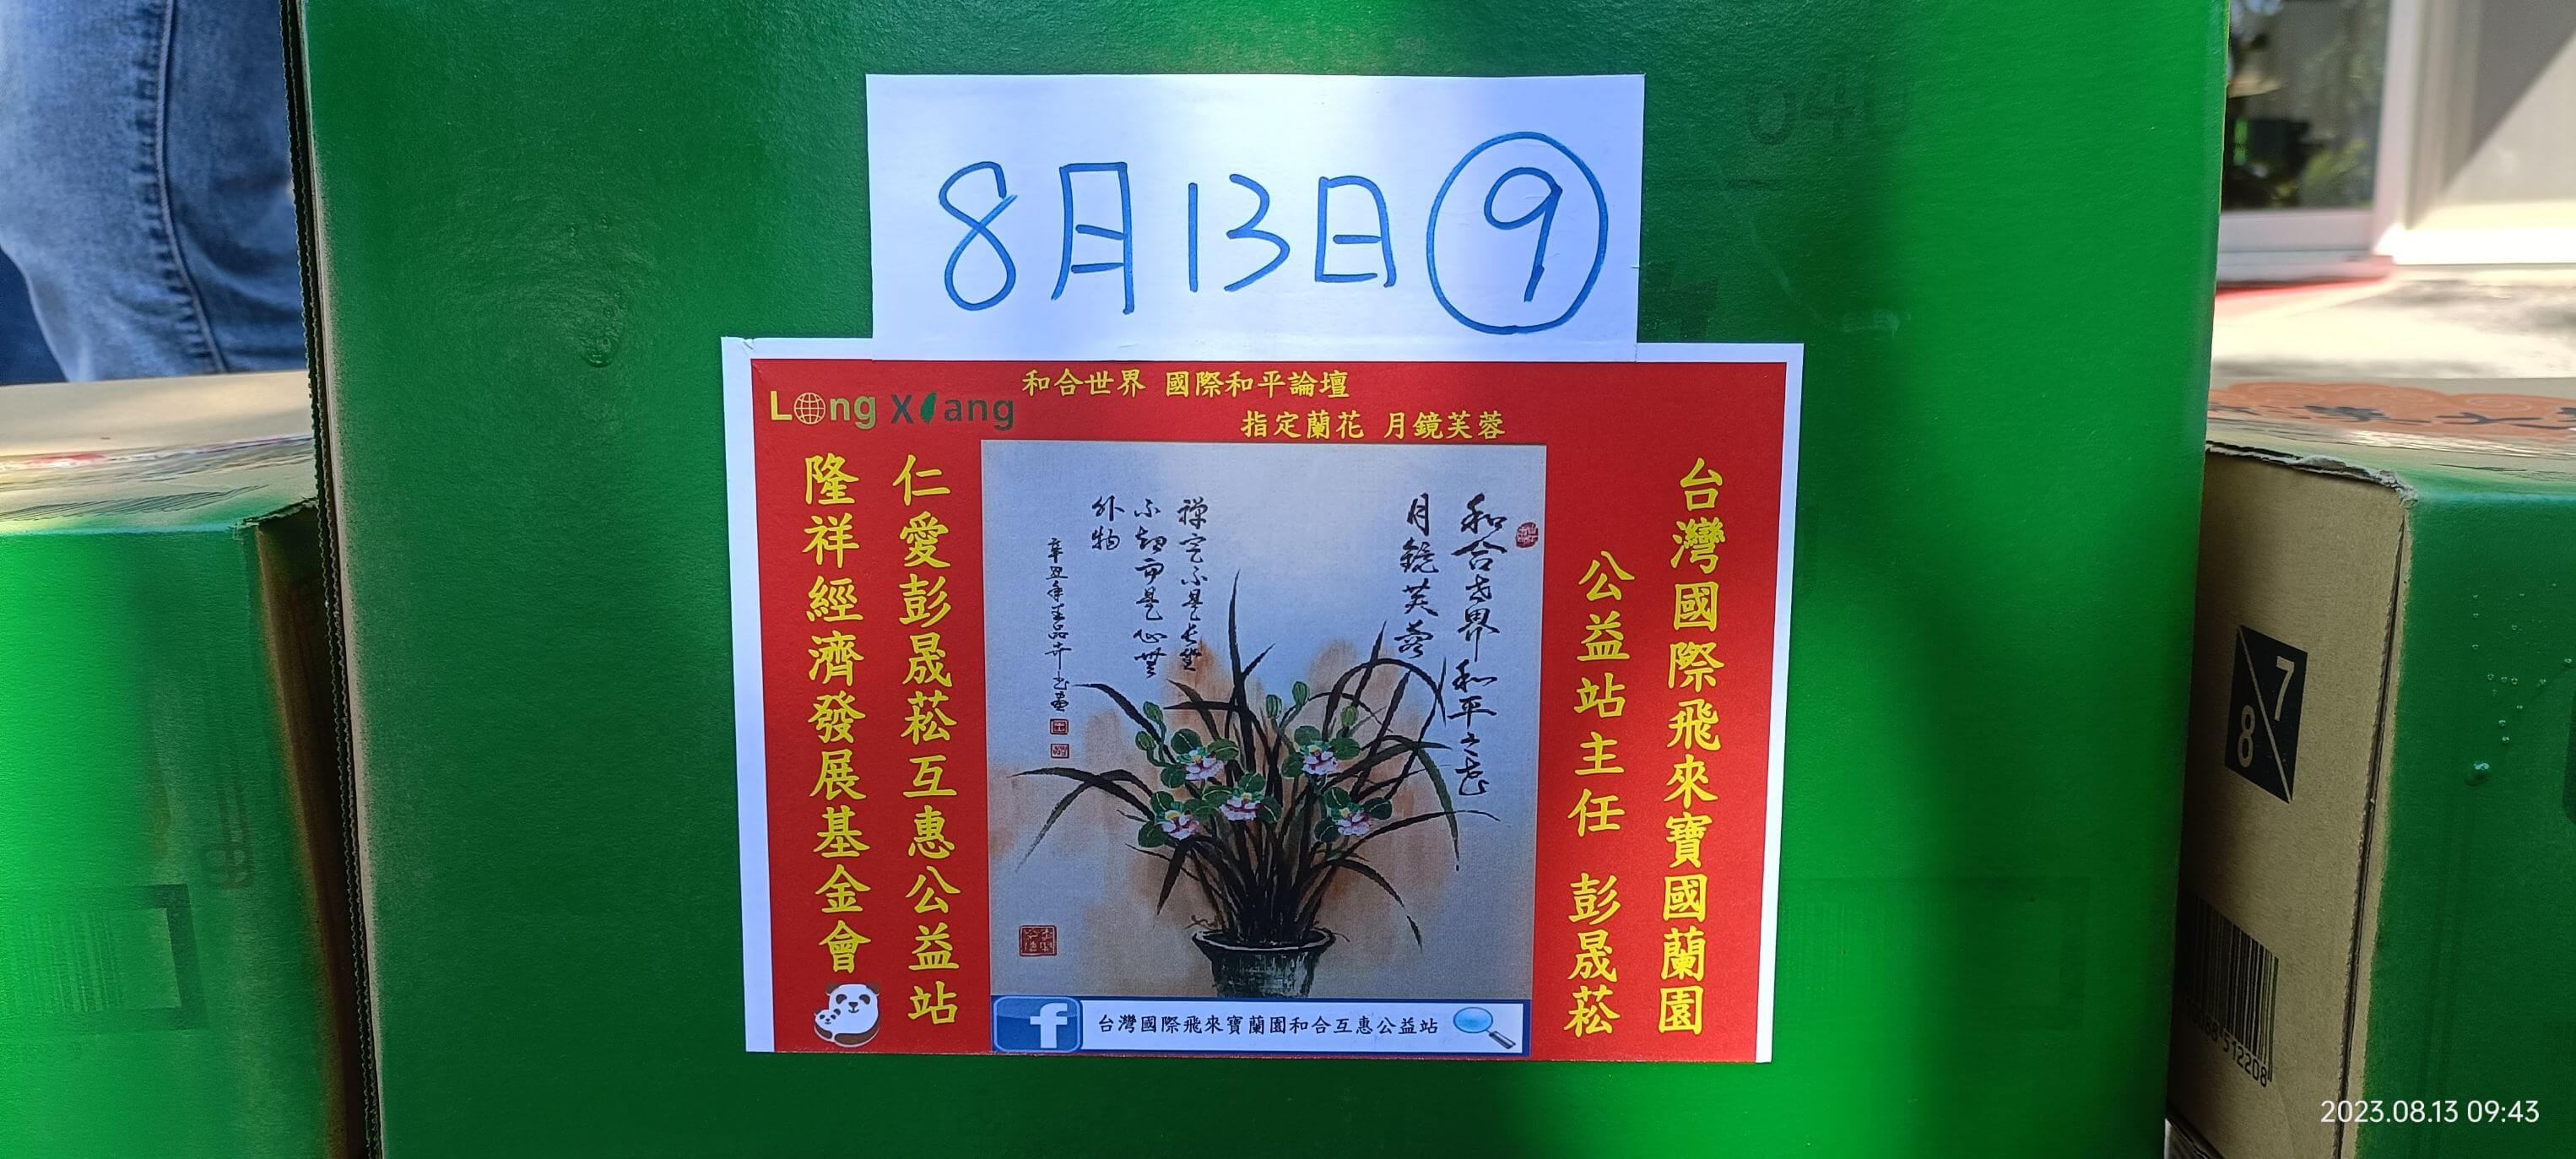 8月13日⑨
Long Xiang
和合世界 國際和平論壇
指定蘭花 月鏡芙蓉
台灣國際飛來寶蘭園
公益站主任 彭晟菘
和合世界 和平之花
月鏡芙蓉
禪定不是長坐
不起而是心無
外物
仁愛彭晟菘互惠公益站
隆祥經濟發展基金會
f 台灣國際飛來寶蘭園和合互惠公益站
7
8
512208
2023.08.13 09:43